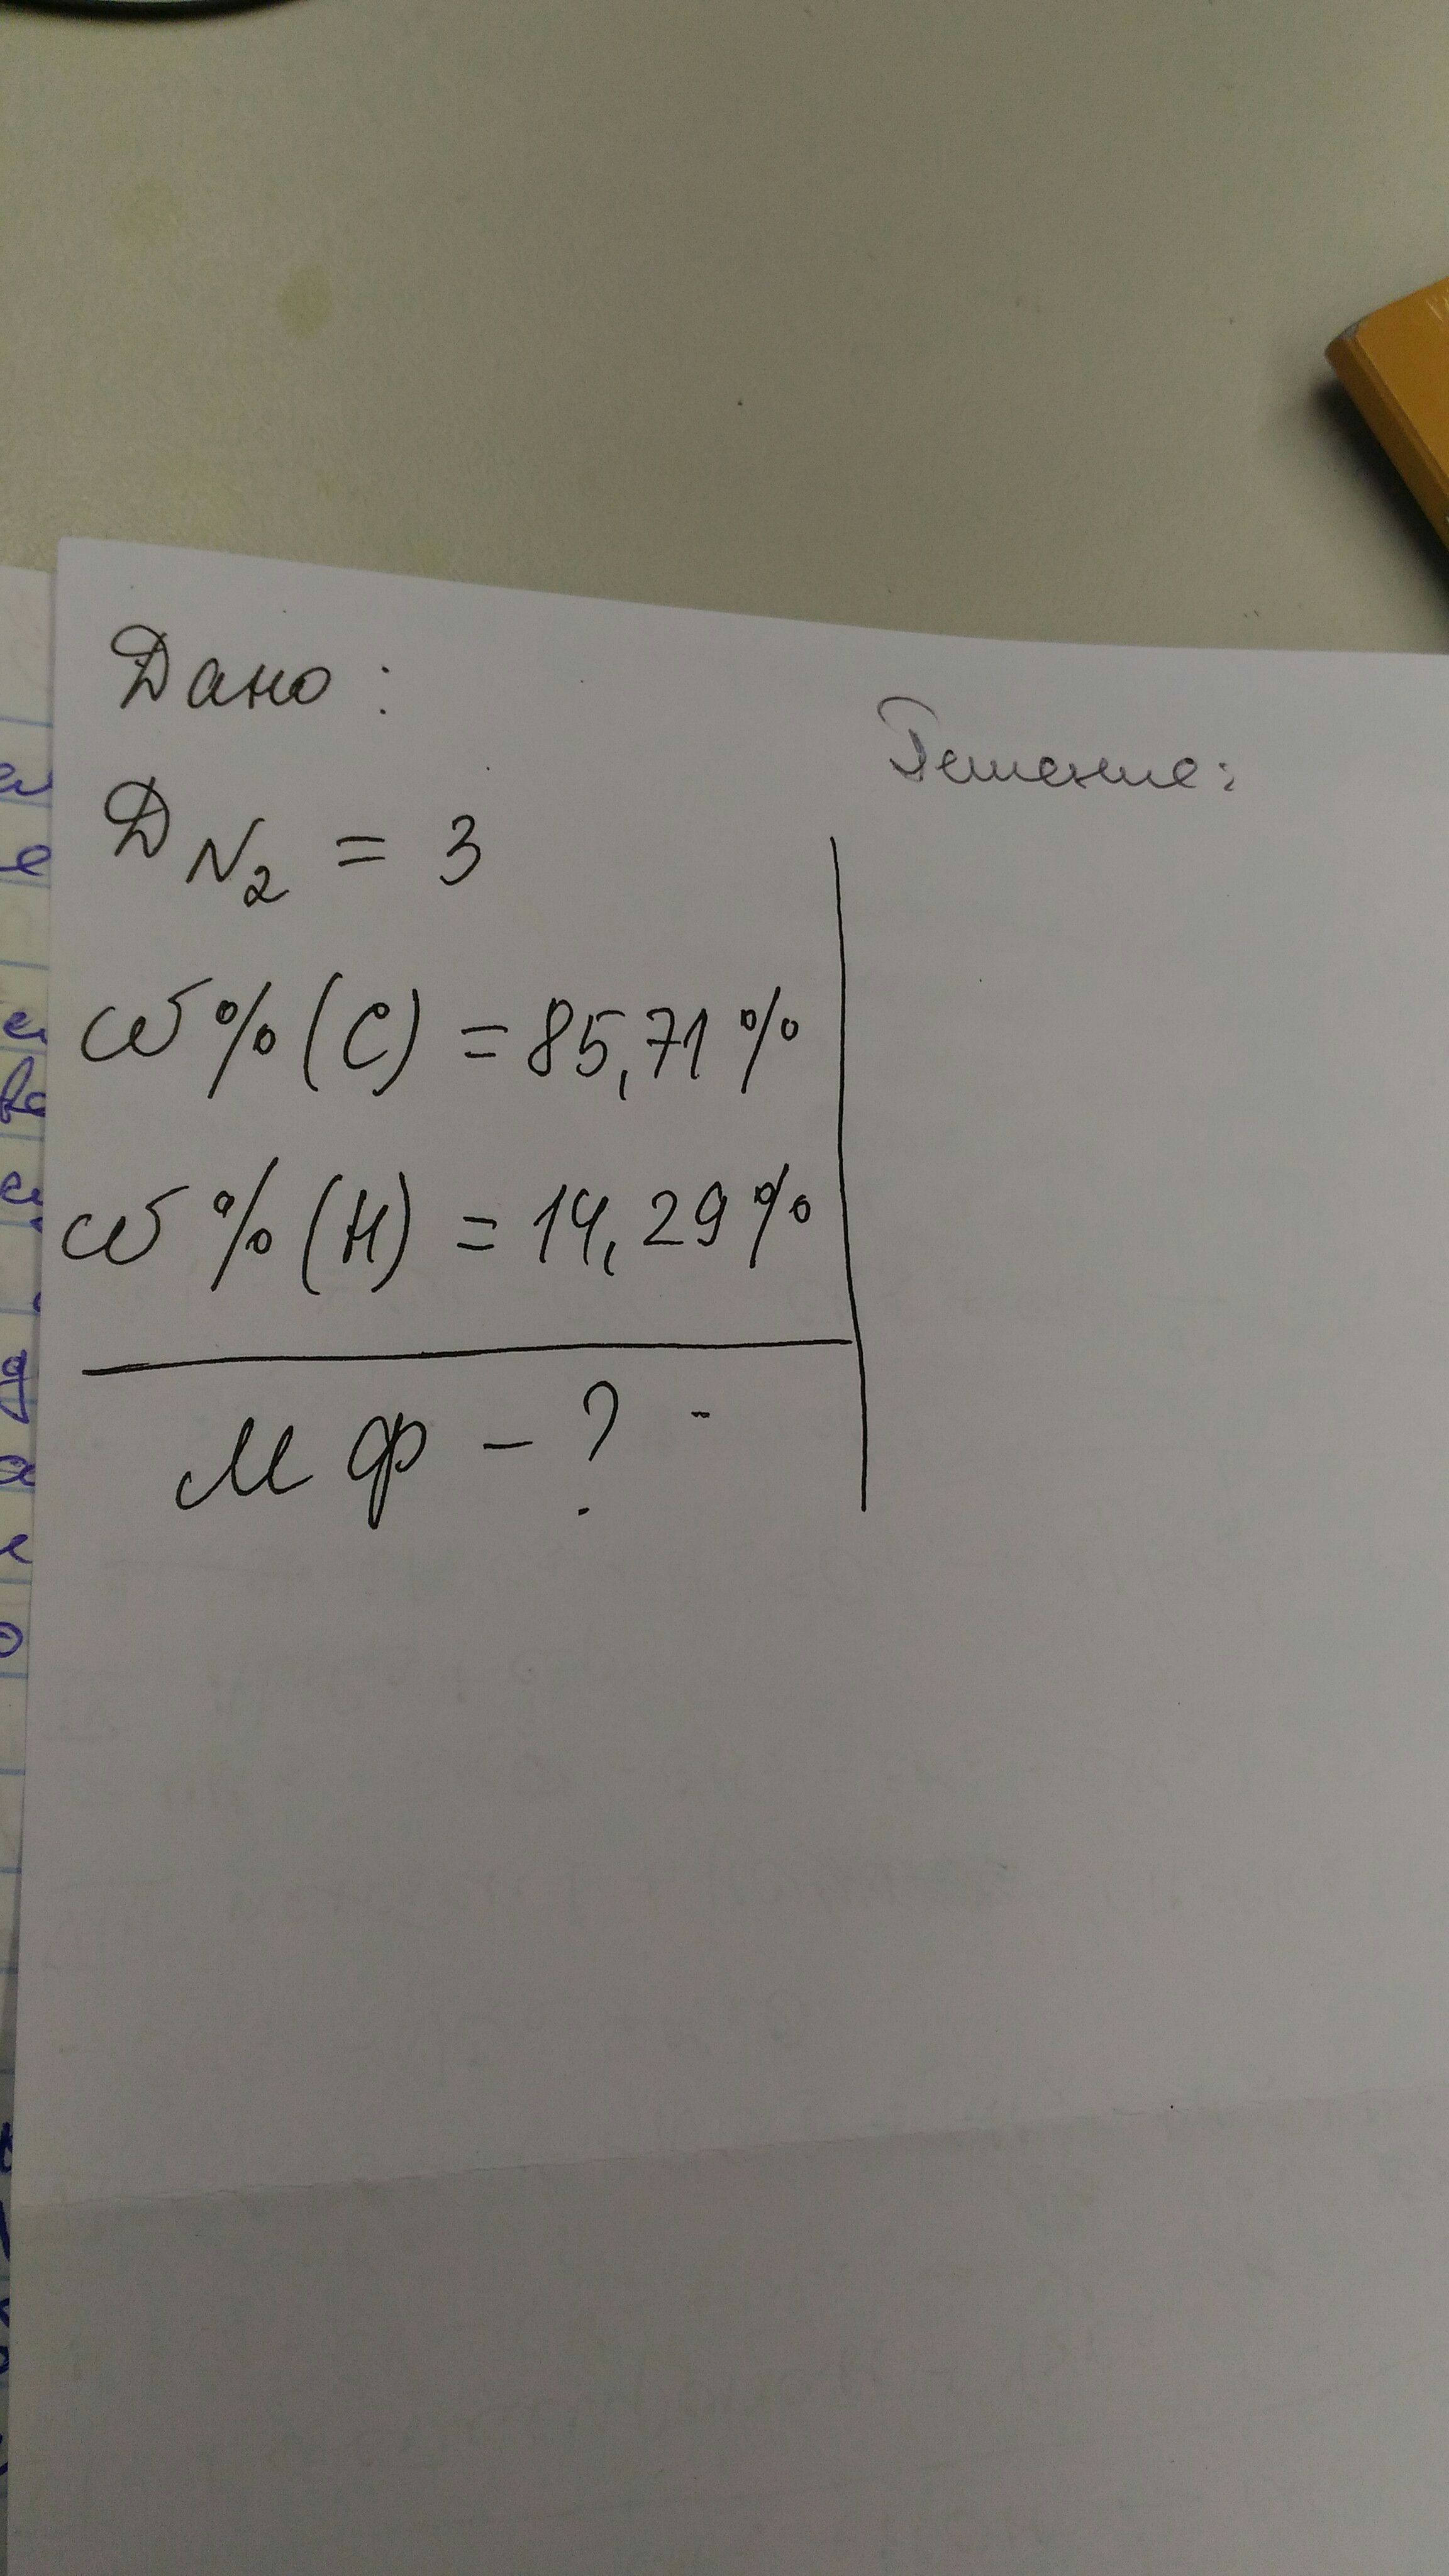 Дано:
Решение:
D N₂ = 3
ω%(C) = 85,71%
ω%(H) = 14,29%
М ф - ?